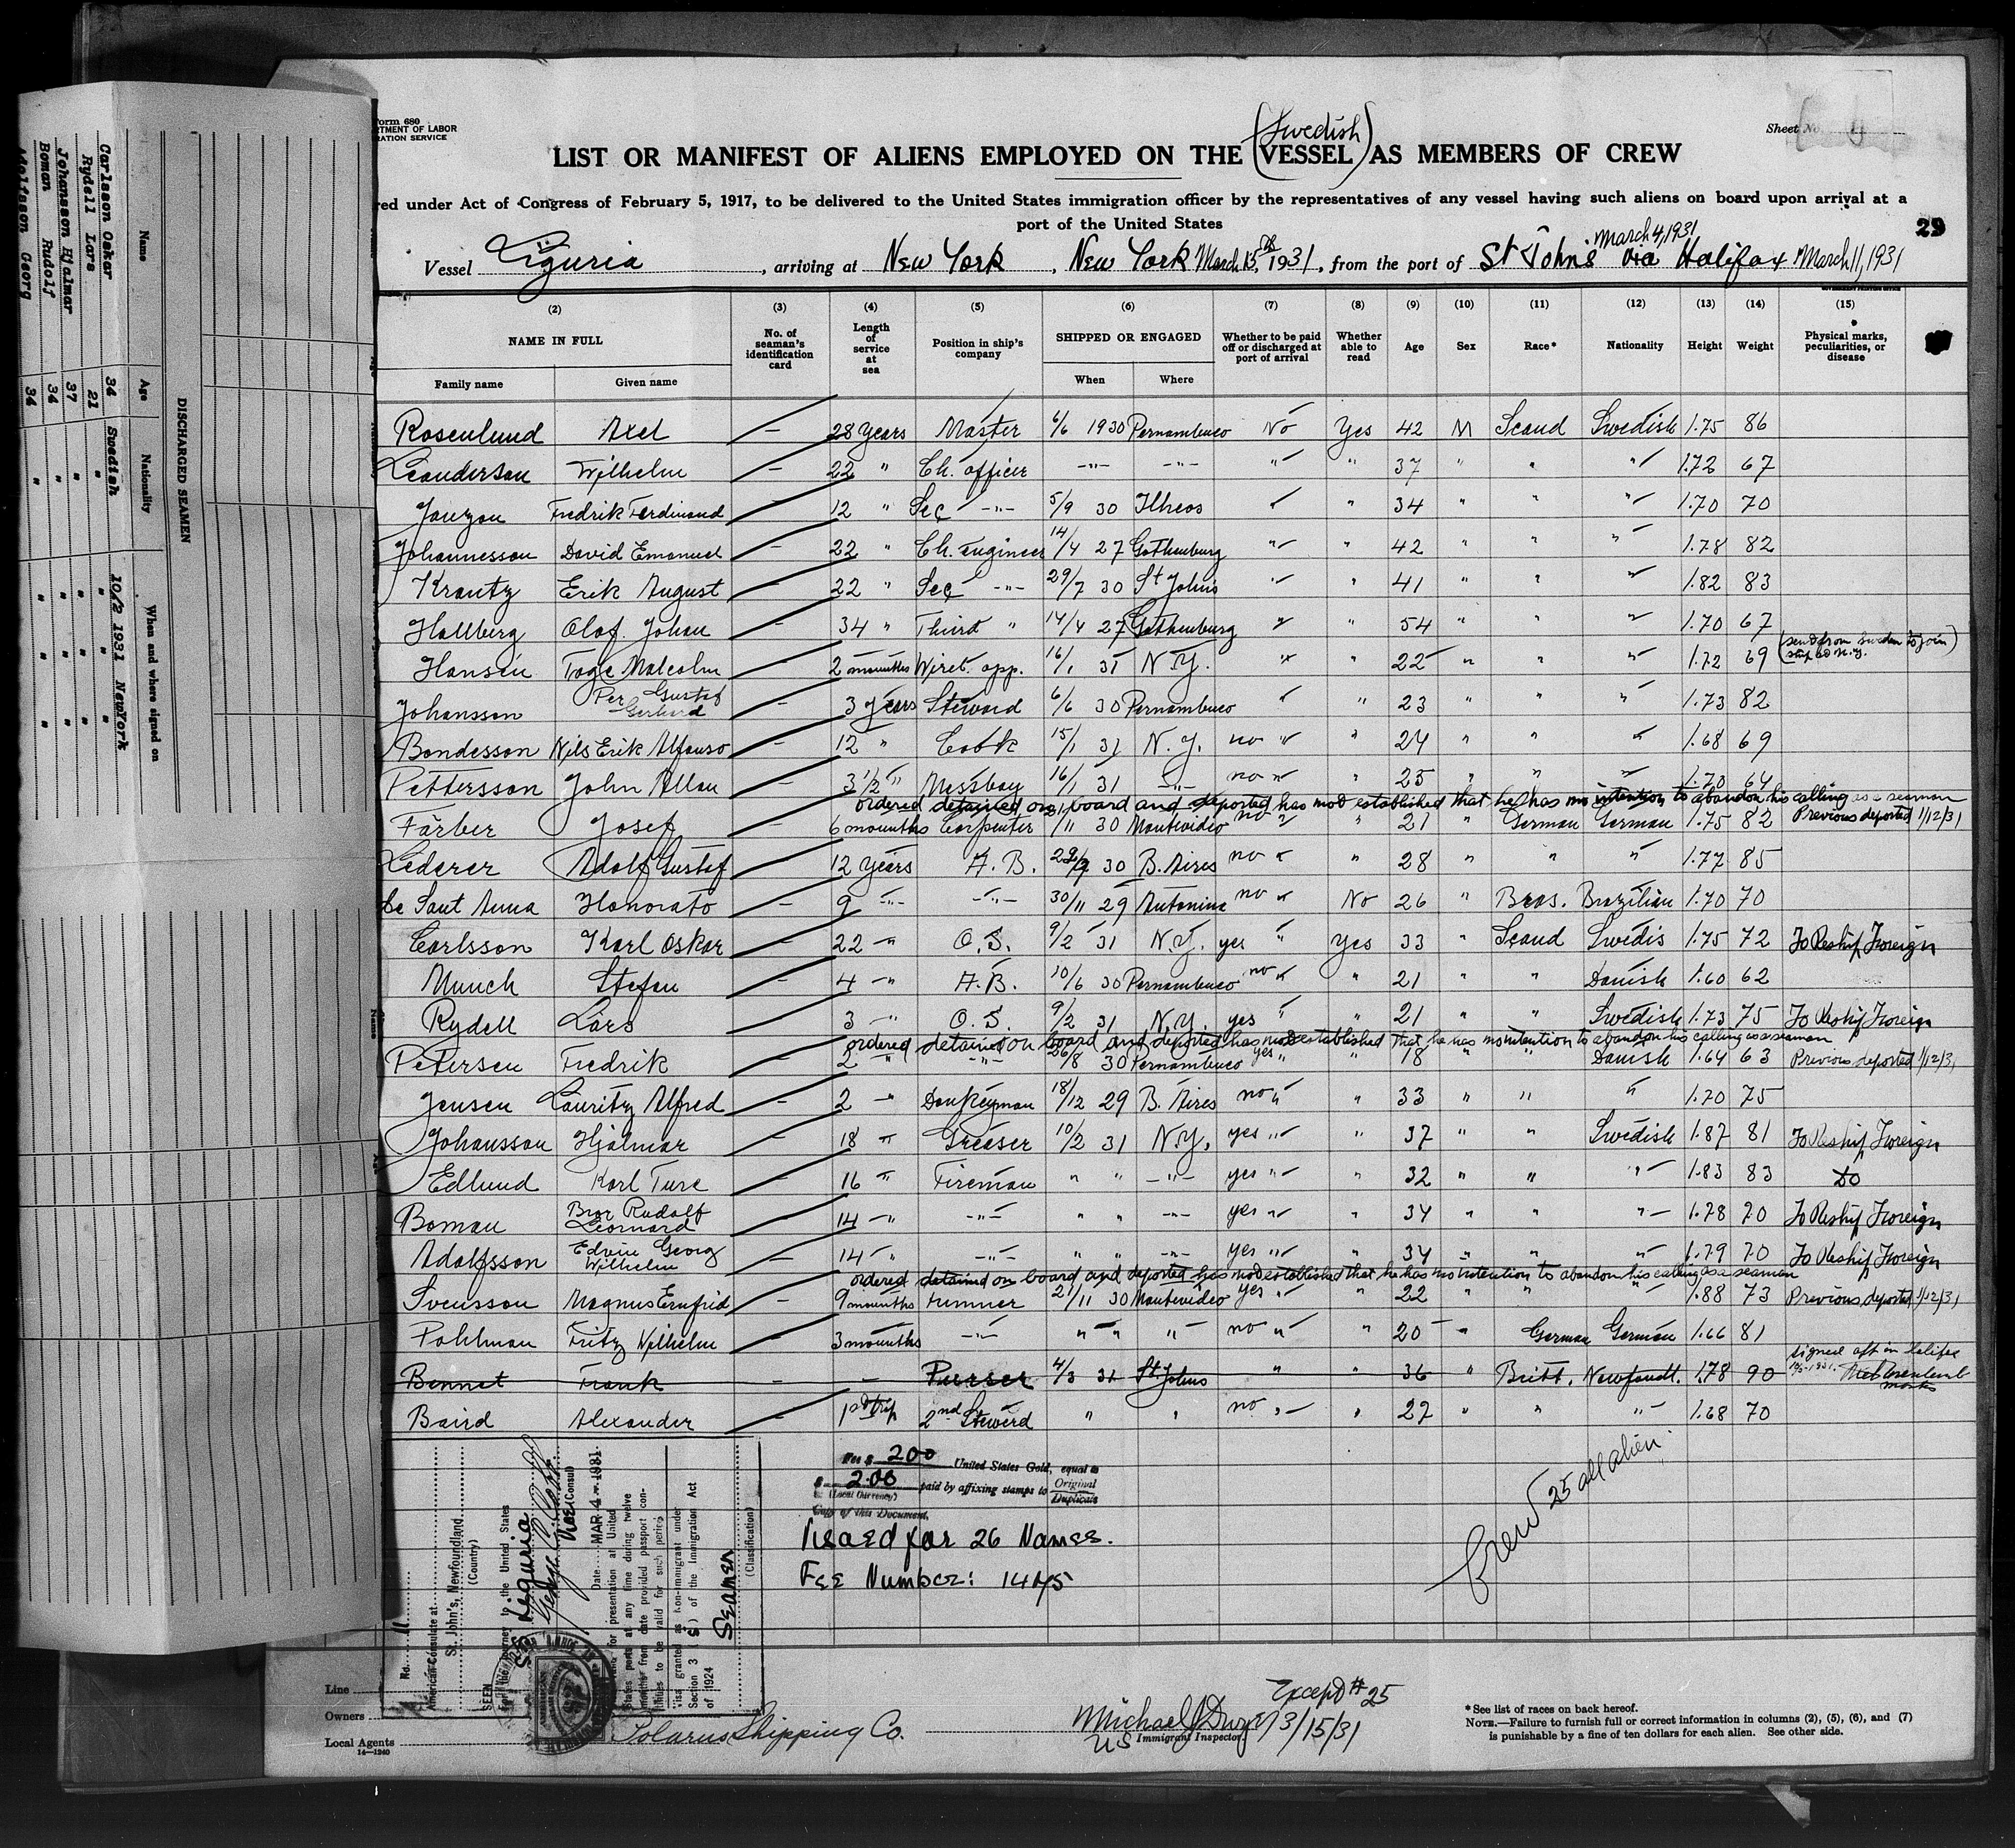 Form 680
RTMENT OF LABOR
RATION SERVICE
Sheet No. 4
(Swedish)
LIST OR MANIFEST OF ALIENS EMPLOYED ON THE VESSEL AS MEMBERS OF CREW
red under Act of Congress of February 5, 1917, to be delivered to the United States immigration officer by the representatives of any vessel having such aliens on board upon arrival at a
port of the United States
29
March 4, 1931
Vessel Liguria, arriving at New York, New York March 15th, 1931, from the port of St Johns via Halifax March 11, 1931
(2) (3) (4) (5) (6) (7) (8) (9) (10) (11) (12) (13) (14) (15)
NAME IN FULL No. of seaman's identification card Length of service at sea Position in ship's company SHIPPED OR ENGAGED Whether to be paid off or discharged at port of arrival Whether able to read Age Sex Race* Nationality Height Weight Physical marks, peculiarities, or disease
Family name Given name When Where
Rosenlund Axel — 28 years Master 6/6 1930 Pernambuco No Yes 42 M Scand Swedish 1.75 86
Leanderson Wilhelm — 22 " Ch. officer -"- -"- " " 37 " " " 1.72 67
Jonzon Fredrik Ferdinand 12 " Sec -"- 5/9 30 Ilheos " " 34 " " " 1.70 70
Johannesson David Emanuel — 22 " Ch. Engineer 14/4 27 Gothenburg " " 42 " " " 1.78 82
Krantz Erik August — 22 " Sec -"- 29/7 30 St Johns " " 41 " " " 1.82 83
Hallberg Olof Johan — 34 " Third " 14/4 27 Gothenburg " " 54 " " " 1.70 67
Hansén Tage Malcolm — 2 mounths Wirel. opp. 16/1 31 N.Y. " " 22 " " " 1.72 69 (sent from Sweden to join ship at N.Y.)
Johansson Per Gustaf Gerhard — 3 years Steward 6/6 30 Pernambuco " " 23 " " " 1.73 82
Bondesson Nils Erik Alfonso — 12 " Cook 15/1 31 N.Y. no " " 24 " " " 1.68 69
Pettersson John Allan — 3 1/2 " Messboy 16/1 31 -"- no " " 25 " " " 1.70 64
ordered detained on board and deported has not established that he has no intention to abandon his calling as a seaman
Färber Josef 6 mounths Carpenter 21/11 30 Montevideo no " " 21 " German German 1.75 82 Previous deported 1/12/31
Lederer Adolf Gustaf 12 years A.B. 30 B. Aires no " " 28 " " " 1.77 85
de Sant Anna Honorato — 9 -"- -"- 30/11 29 Antonina no " No 26 " Bras. Brazilian 1.70 70
Carlsson Karl Oskar — 22 -"- O.S. 9/2 31 N.Y. yes " Yes 33 " Scand Swedis 1.75 72 To Reship Foreign
Munch Stefan — 4 -"- A.B. 10/6 30 Pernambuco no " " 21 " " Danish 1.60 62
Rydell Lars 3 -"- O.S. 9/2 31 N.Y. yes " " 21 " " Swedish 1.73 75 To Reship Foreign
ordered detained on board and deported has not established that he has no intention to abandon his calling as a seaman
Petersen Fredrik 2 " -"- 26/8 30 Pernambuco yes " " 18 " " Danish 1.64 63 Previous deported 1/12/31
Jensen Lauritz Alfred — 2 -"- Donkeyman 18/12 29 B. Aires no " " 33 " " " 1.70 75
Johansson Hjalmar — 18 " Greaser 10/2 31 N.Y. yes " " 37 " " Swedish 1.87 81 To Reship Foreign
Edlund Karl Ture — 16 " Fireman " " -"- yes " " 32 " " " 1.83 83 Do
Boman Bror Rudolf Leonard 14 -"- -"- " " -"- yes " " 34 " " " 1.78 70 To Reship Foreign
Adolfsson Edvin Georg Wilhelm — 14 " -"- " " -"- yes " " 34 " " " 1.79 70 To Reship Foreign
ordered detained on board and deported has not established that he has no intention to abandon his calling as a seaman
Svensson Magnus Ernfrid — 9 mounths Trimmer 21/11 30 Montevideo yes " " 22 " " " 1.88 73 Previous deported 1/12/31
Pohlman Fritz Wilhelm — 3 mounths -"- " " " no " " 20 " German German 1.66 81
signed off in Halifax
Bennet Frank — — Purser 4/3 31 St Johns " " 36 " Britt. Newfoundl. 1.78 90 Axel Rosenlund
master
Baird Alexander — 1st trip 2nd Steward " " no " " 27 " " " 1.68 70
Crew 25 all alien
Fee $ 2.00 United States Gold, equal to
$ 2.00 paid by affixing stamps to Original
(Local Currency) Duplicate
Copy of this Document.
Visaed for 26 Names.
Fee Number: 1475
No. 11
American Consulate at
St. John's, Newfoundland
(Country)
SEEN
For the journey to the United States
SS Liguria
Vice Consul
Date MAR 4 - 1931
for presentation at United
States ports at any time during twelve
months from date provided passport con-
tinues to be valid for such period
Visa granted as Non-immigrant under
Section 3 (5) of the Immigration Act
of 1924
Seamen
(Classification)
Line
Owners
Local Agents Polarus Shipping Co.
14—1240
Except #25
3/15/31
US Immigrant Inspector.
*See list of races on back hereof.
NOTE.—Failure to furnish full or correct information in columns (2), (5), (6), and (7)
is punishable by a fine of ten dollars for each alien. See other side.
DISCHARGED SEAMEN
Name Age Nationality When and where signed on
Carlsson Oskar 34 Swedish 10/2 1931 NewYork
Rydell Lars 21 " " " "
Johansson Hjalmar 37 " " " "
Boman Rudolf 34 " " " "
Adolfsson Georg 34 " " " "